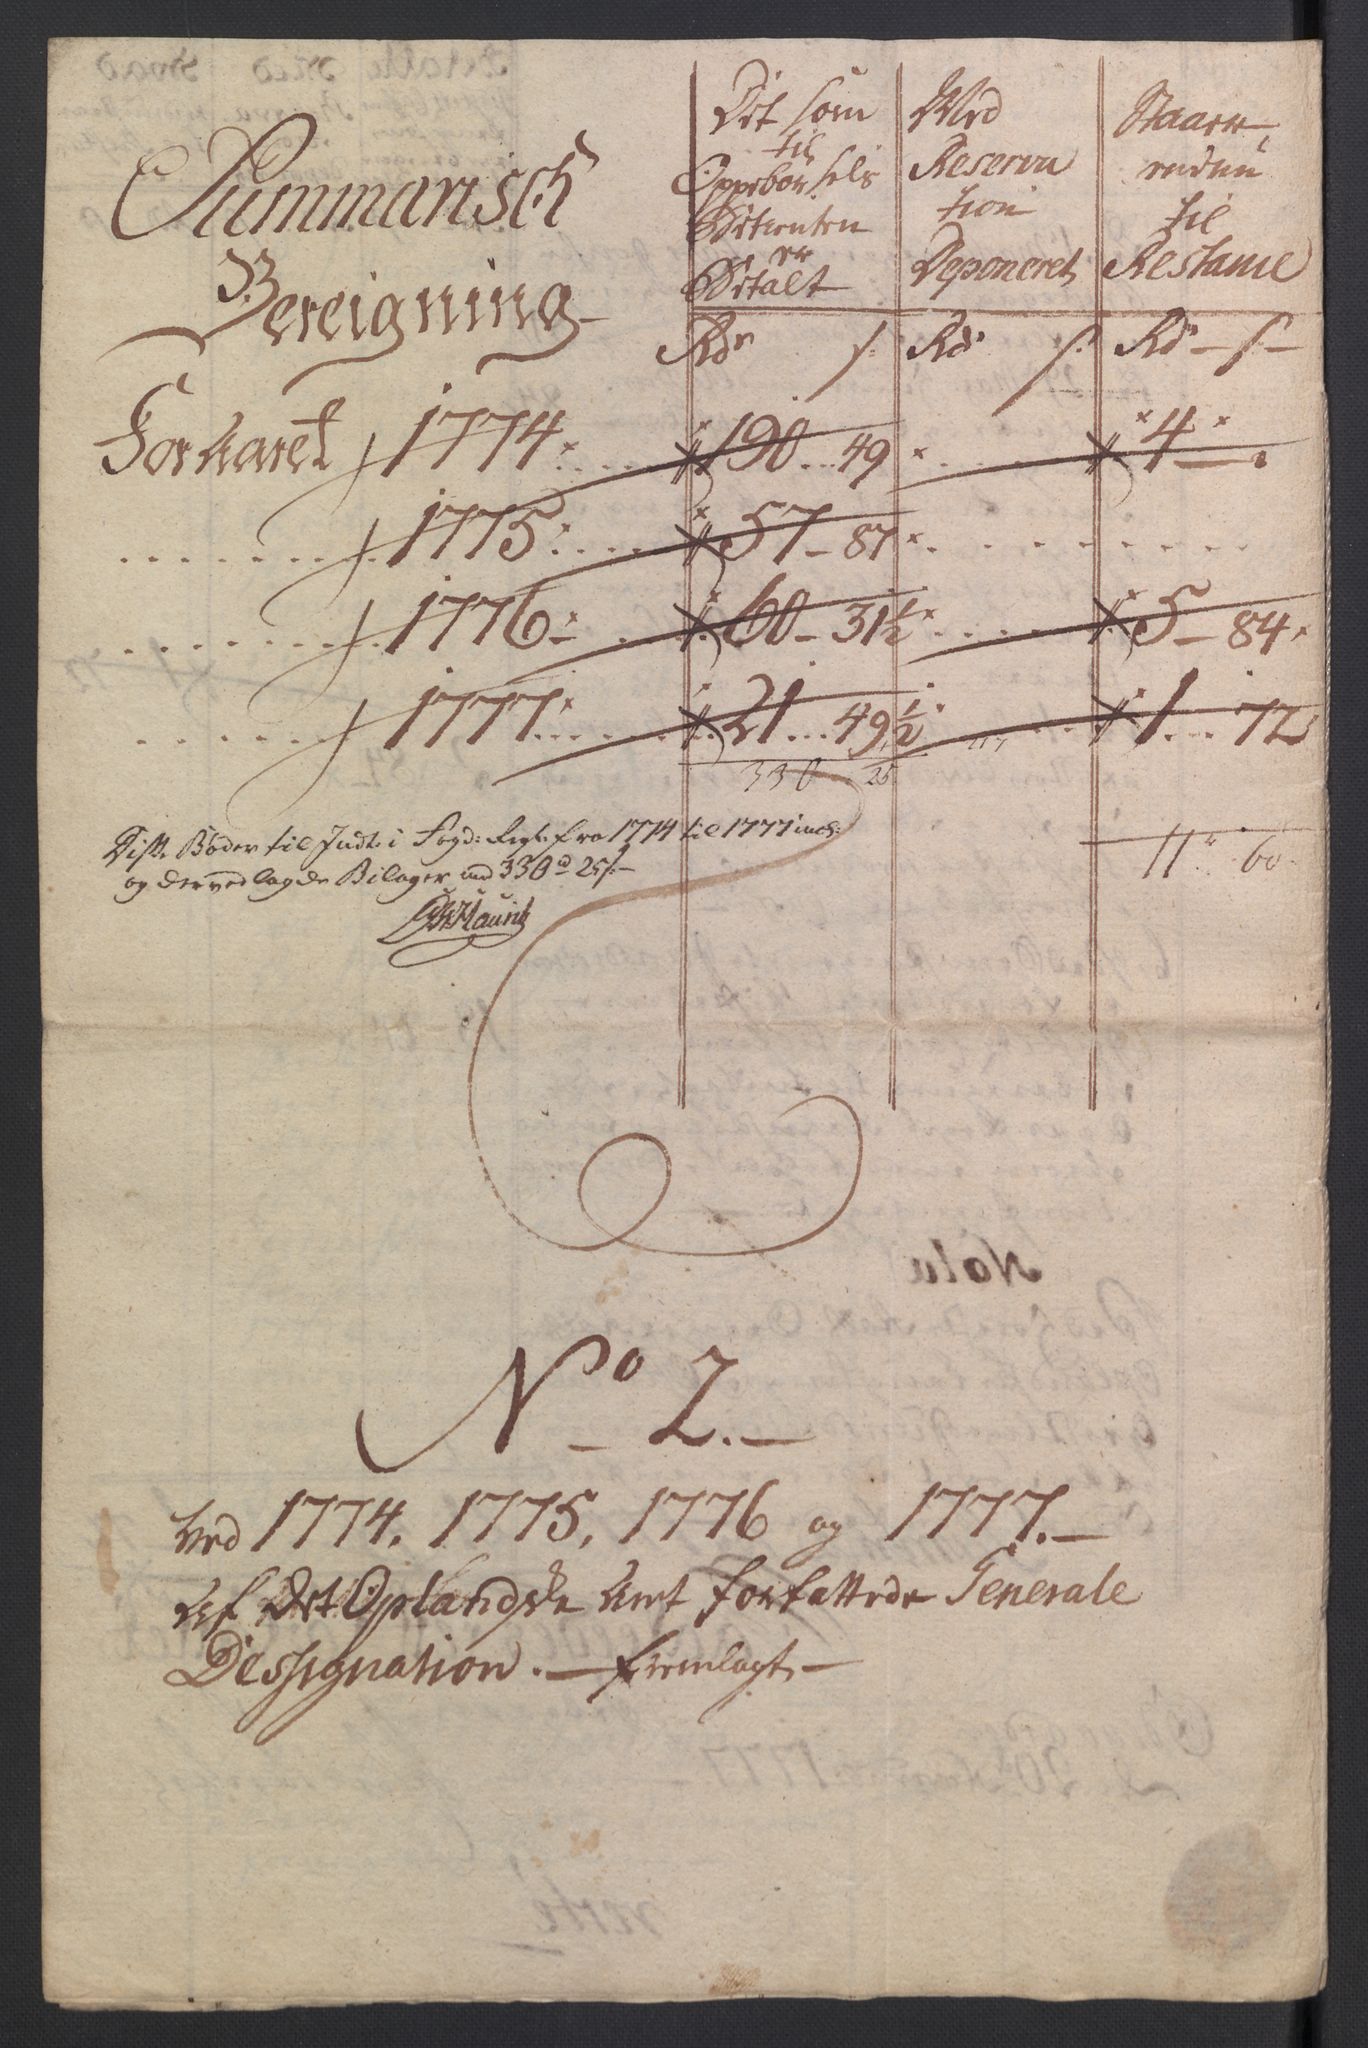 Summarisch
Bereigning
Det som
til
Oppebørsels
Betienten
er
Betalt
Med
Reserva
tion
Deponeret
Staaer
endnu
til
Restance
Rdr s:
Rdr s:
Rdr - s: -
For Aaret 1774 190 .. 49 4 -
1775 57 - 87
1776 60 - 31½ 5 - 84
1777 21 ... 49½ 1 ... 72
330 25
11 60
Diße Bøder til Indt: i Fogd: Regn: fra 1774 til 1777 incl:
og derved lagde Bilager med 330 rd 25 s -
No 2. -
Ved 1774, 1775, 1776 og 1777. -
af Det Oplandske Amt forfattede Generale
Dessignation. - fremlagt -
Nota
verte